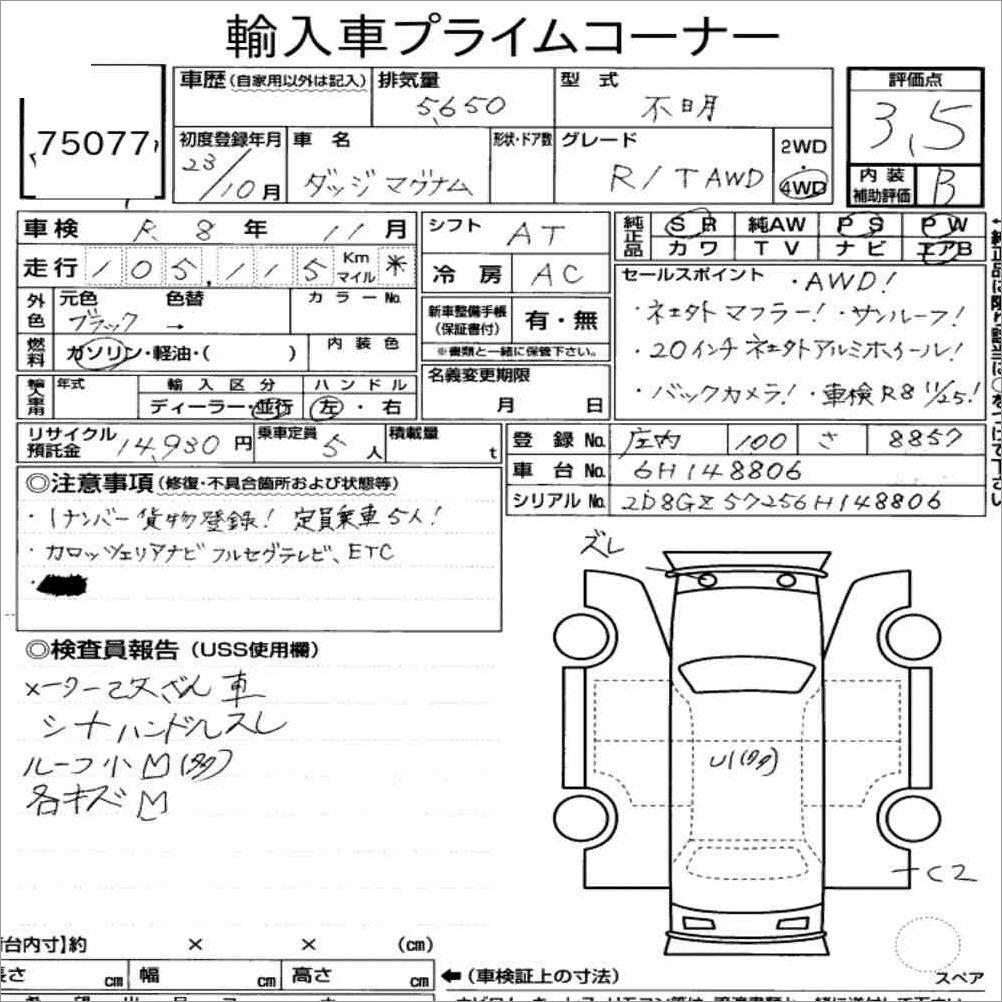 輸入車プライムコーナー
75077
車歴 (自家用以外は記入) 排気量 5,650 型 式 不明
評価点 3,5
初度登録年月 23/10月 車 名 ダッジ マグナム 形状・ドア数 グレード R/T AWD 2WD 4WD
内 装 補助評価 B
車検 R 8 年 11月
走行 105,115 Km マイル *
シフト AT
冷 房 AC
純正品 SR 純AW PS PW
カワ TV ナビ エアB
外色 元色 ブラック 色替 → カラーNo.
燃料 ガソリン・軽油・( ) 内 装 色
新車整備手帳 (保証書付) 有・無
※書類と一緒に保管下さい。
セールスポイント ・AWD!
・ネェタト マフラー! ・サンルーフ!
・20インチ ネェタトアルミホイール!
・バックカメラ! ・車検R8 11/25!
輸入車用 年式 輸 入 区 分 ハ ン ド ル
ディーラー・並行 左・右
名義変更期限
月 日
リサイクル預託金 14,930 円 乗車定員 5 人 積載量 t
登 録 No. 庄内 100 さ 8857
車 台 No. 6H148806
シリアル No. 2D8GZ57256H148806
◎注意事項 (修復・不具合箇所および状態等)
・1ナンバー 貨物登録! 定員乗車5人!
・カロッツェリアナビ フルセグテレビ、ETC
ズレ
◎検査員報告 (USS使用欄)
メーター改ざん車
シナハンドルスレ
ルーフ小凹(多)
各キズ凹
U1(多)
C2
台内寸】約 × × (cm)
長さ cm 幅 cm 高さ cm
←(車検証上の寸法)
スペア